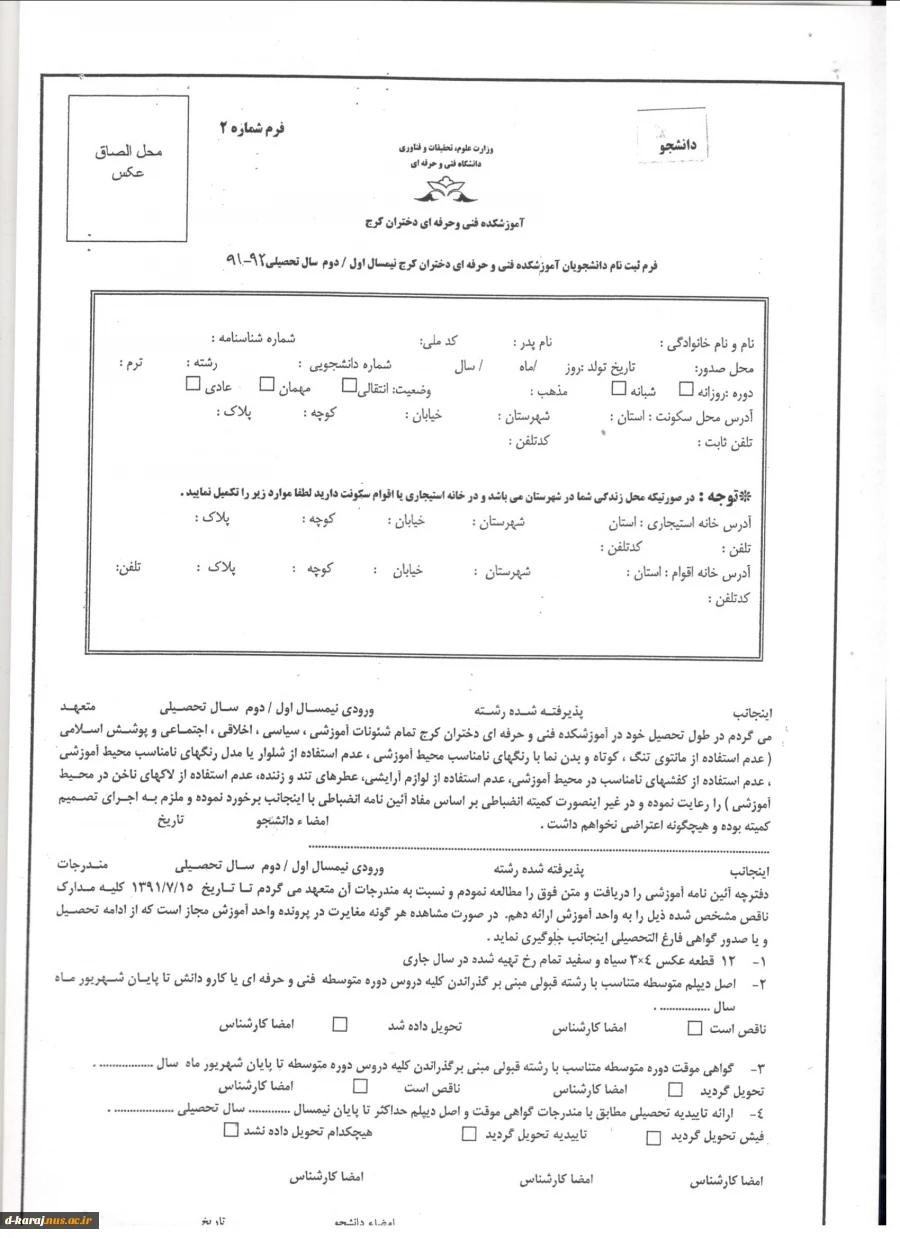 دانشجو
فرم شماره ۲
محل الصاق
عکس
وزارت علوم، تحقیقات و فناوری
دانشگاه فنی و حرفه ای
آموزشکده فنی وحرفه ای دختران کرج
فرم ثبت نام دانشجویان آموزشکده فنی و حرفه ای دختران کرج نیمسال اول / دوم سال تحصیلی ۹۲-۹۱
نام و نام خانوادگی : نام پدر : کد ملی: شماره شناسنامه :
محل صدور: تاریخ تولد :روز /ماه / سال شماره دانشجویی : رشته : ترم :
دوره :روزانه □ شبانه □ مذهب : وضعیت: انتقالی □ مهمان □ عادی □
آدرس محل سکونت : استان : شهرستان : خیابان : کوچه : پلاک :
تلفن ثابت : کدتلفن :
*توجه : در صورتیکه محل زندگی شما در شهرستان می باشد و در خانه استیجاری یا اقوام سکونت دارید لطفا موارد زیر را تکمیل نمایید .
آدرس خانه استیجاری : استان شهرستان : خیابان : کوچه : پلاک :
تلفن : کدتلفن :
آدرس خانه اقوام : استان : شهرستان : خیابان : کوچه : پلاک : تلفن:
کدتلفن :
اینجانب پذیرفته شده رشته ورودی نیمسال اول / دوم سال تحصیلی متعهد
می گردم در طول تحصیل خود در آموزشکده فنی و حرفه ای دختران کرج تمام شئونات آموزشی ، سیاسی ، اخلاقی ، اجتماعی و پوشش اسلامی
( عدم استفاده از مانتوی تنگ ، کوتاه و بدن نما با رنگهای نامناسب محیط آموزشی ، عدم استفاده از شلوار یا مدل رنگهای نامناسب محیط آموزشی
، عدم استفاده از کفشهای نامناسب در محیط آموزشی، عدم استفاده از لوازم آرایشی، عطرهای تند و زننده، عدم استفاده از لاکهای ناخن در محیط
آموزشی ) را رعایت نموده و در غیر اینصورت کمیته انضباطی بر اساس مفاد آئین نامه انضباطی با اینجانب برخورد نموده و ملزم به اجرای تصمیم
کمیته بوده و هیچگونه اعتراضی نخواهم داشت . امضا ء دانشجو تاریخ
اینجانب پذیرفته شده رشته ورودی نیمسال اول / دوم سال تحصیلی مندرجات
دفترچه آئین نامه آموزشی را دریافت و متن فوق را مطالعه نمودم و نسبت به مندرجات آن متعهد می گردم تا تاریخ ۱۳۹۱/۷/۱۵ کلیه مدارک
ناقص مشخص شده ذیل را به واحد آموزش ارائه دهم. در صورت مشاهده هر گونه مغایرت در پرونده واحد آموزش مجاز است که از ادامه تحصیل
و یا صدور گواهی فارغ التحصیلی اینجانب جلوگیری نماید .
۱- ۱۲ قطعه عکس ۴×۳ سیاه و سفید تمام رخ تهیه شده در سال جاری
۲- اصل دیپلم متوسطه متناسب با رشته قبولی مبنی بر گذراندن کلیه دروس دوره متوسطه فنی و حرفه ای یا کارو دانش تا پایان شهریور ماه
سال ................ .
ناقص است □ امضا کارشناس تحویل داده شد □ امضا کارشناس
۳- گواهی موقت دوره متوسطه متناسب با رشته قبولی مبنی برگذراندن کلیه دروس دوره متوسطه تا پایان شهریور ماه سال ................. .
تحویل گردید □ امضا کارشناس ناقص است □ امضا کارشناس
۴- ارائه تاییدیه تحصیلی مطابق با مندرجات گواهی موقت و اصل دیپلم حداکثر تا پایان نیمسال ............ سال تحصیلی .................. .
فیش تحویل گردید □ تاییدیه تحویل گردید □ هیچکدام تحویل داده نشد □
امضا کارشناس امضا کارشناس امضا کارشناس
امضاء دانشجو تاریخ
d-karaj.nus.ac.ir